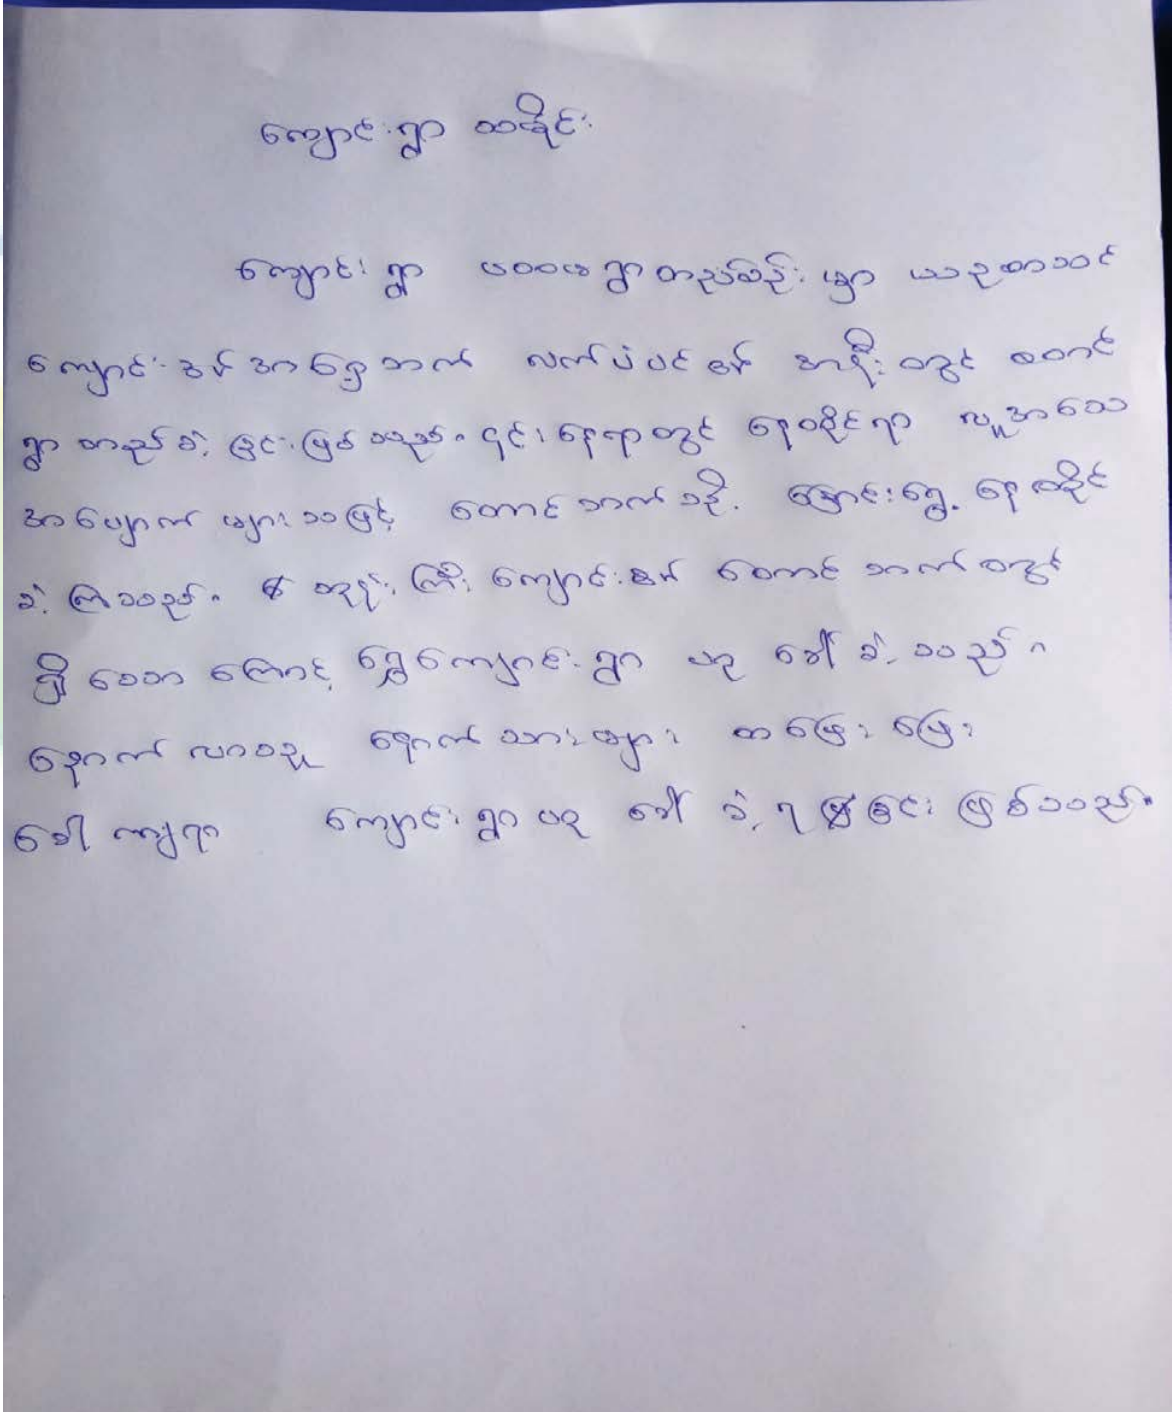 ကျောင်းရွာ သမိုင်း
ကျောင်းရွာ ပထမရွာတည်စဉ်းမှာ ယခုစာသင်
ကျောင်း အရှေ့ဘက် လက်ပံပင် အနီး တွင် စတင်
ရွာ တည်ခဲ့ခြင်းဖြစ်သည်။ ၎င်းနေရာတွင် နေထိုင်ရာ လူအသေ
အပျောက် များသဖြင့် တောင်ဘက်သို့ ပြောင်းရွှေ့ နေထိုင်
ခဲ့ကြသည်။ ဘုန်းကြီးကျောင်း တောင်ဘက်တွင်
ရှိသောကြောင့် ရွှေကျောင်းရွာ ဟု ခေါ်ခဲ့သည်။
နောက်လာသူ နောက်သားများ တဖြေးဖြေး
ခေါ်ကျရာ ကျောင်းရွာဟု ခေါ်ခဲ့ရခြင်း ဖြစ်သည်။